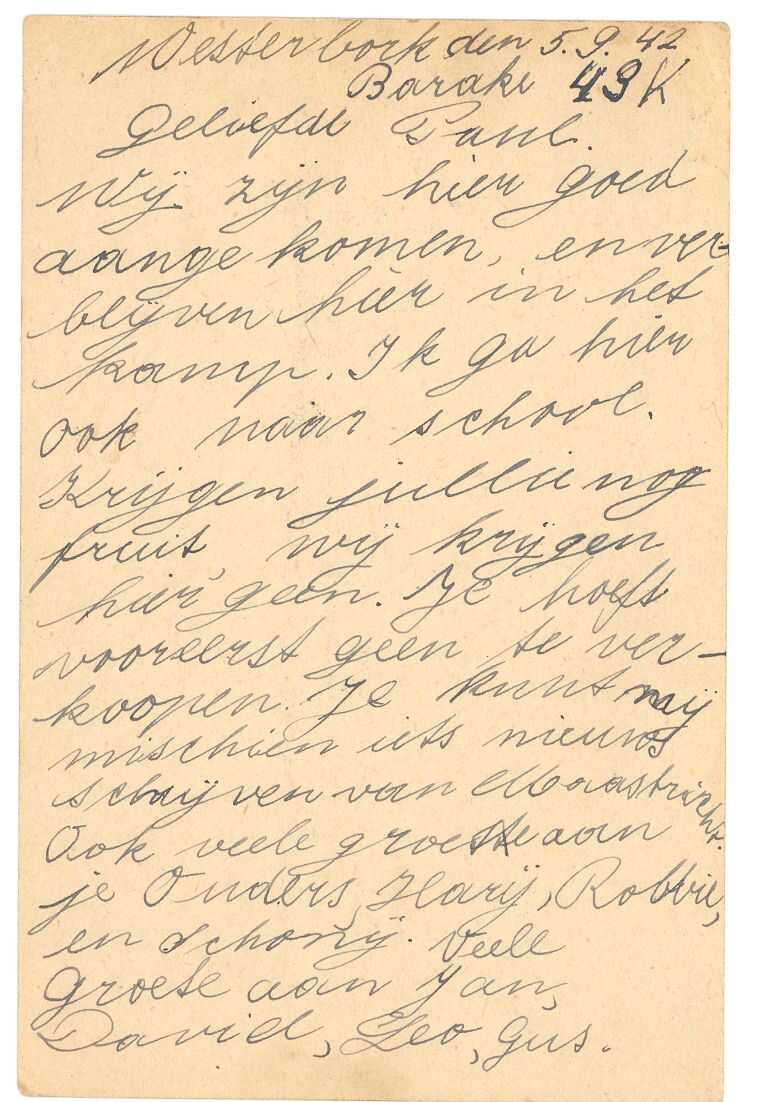 Westerbork den 5.9.42
Barake 49K
Geliefde Paul.
Wij zijn hier goed
aange komen, en ver-
blijven hier in het
kamp. Ik ga hier
ook naar school.
Krijgen jullie nog
fruit, wij krijgen
hier geen. Je hoeft
vooreerst geen te ver-
koopen. Je kunt mij
mischien iets nieuws
schrijven van Maastricht.
Ook veele groete aan
je Ouders, Harij, Robbie,
en Schonij. Veele
Groete aan Jan,
David, Leo, Gus.